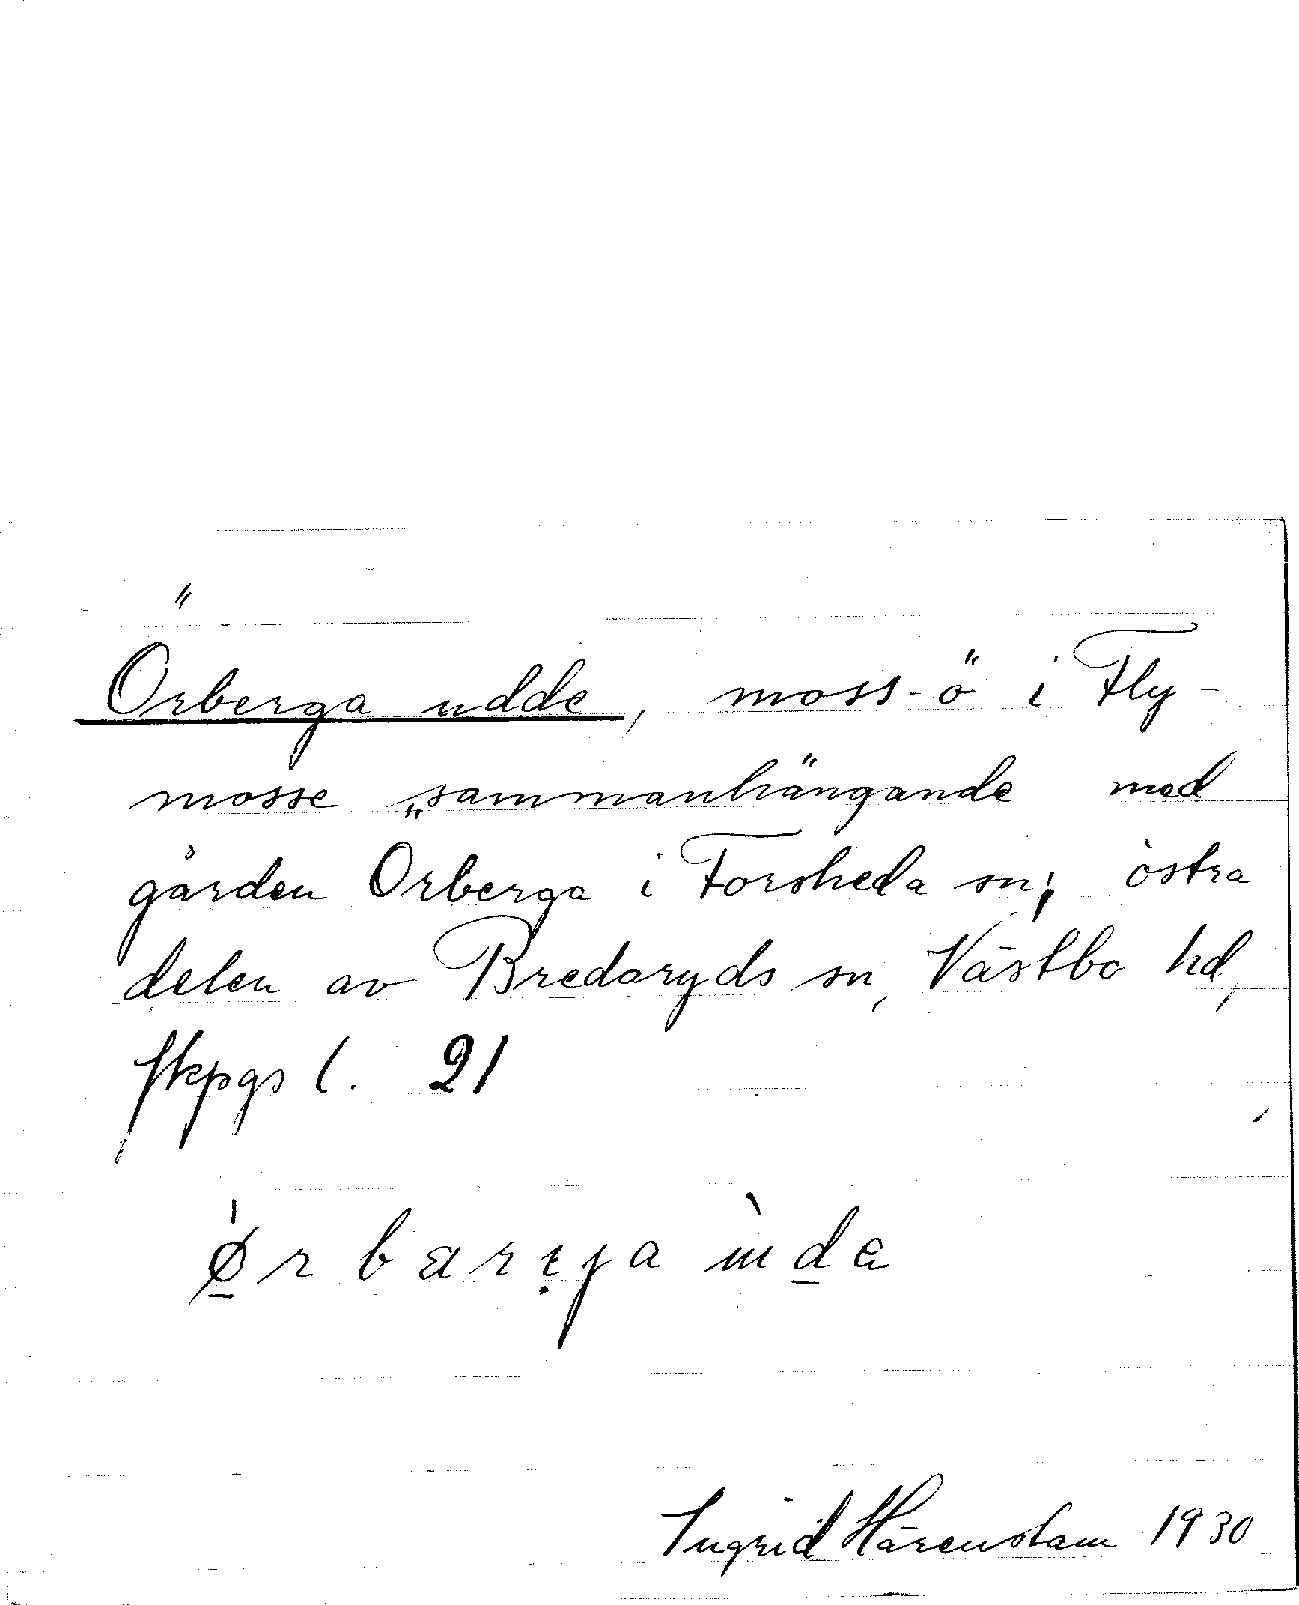 Örberga udde, moss-ö i Fly-
mosse sammanhängande med
gården Örberga i Forsheda sn; östra
delen av Bredaryds sn, Västbo hd,
Jkpgs l. 21
ørbarɡa ude
Ingrid Härenstam 1930